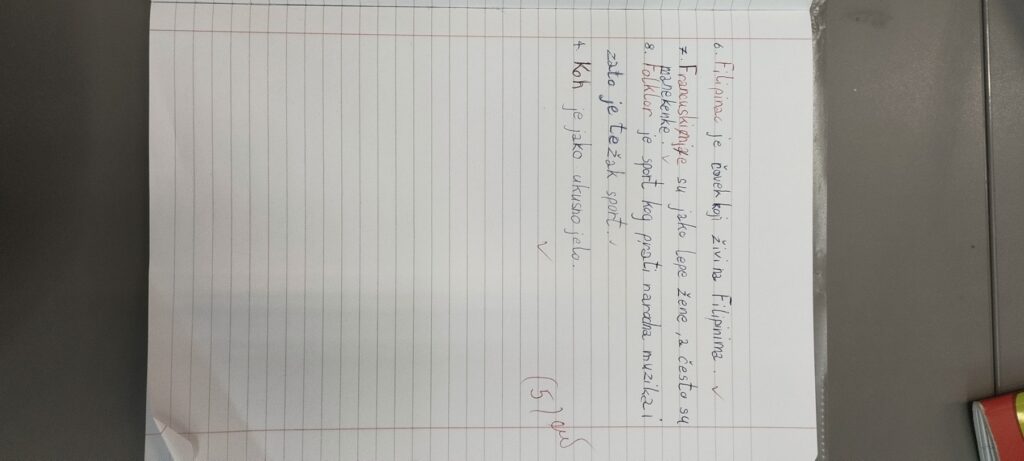 6. Filipinac je čovek koji živi na Filipinima.
7. Francuskinje su jako lepe žene, a često su
manekenke.
8. Folklor je sport kog prati narodna muzika i
zato je težak sport.
4. Koh je jako ukusno jelo.
(5)